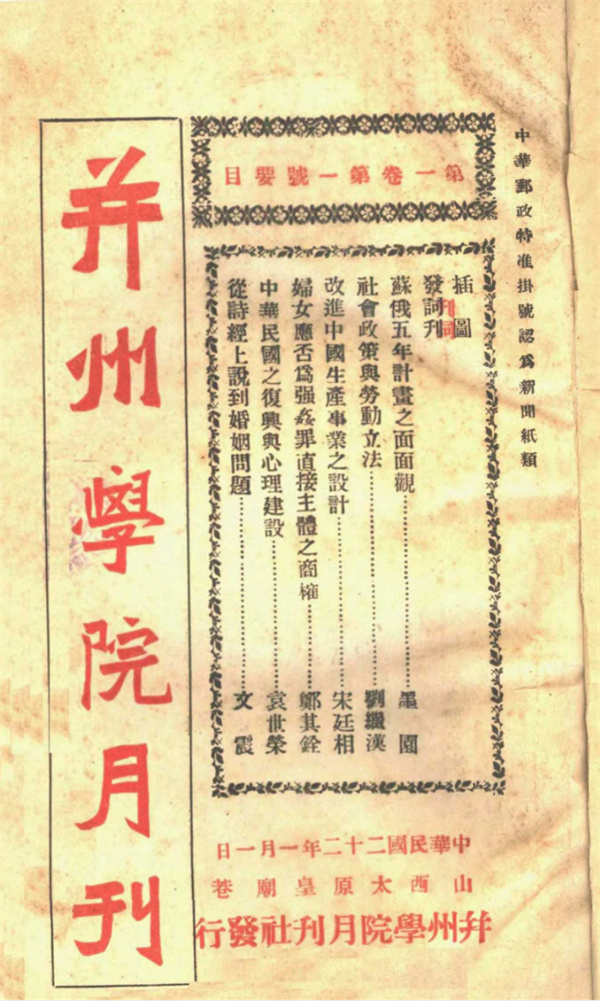 中華郵政特准掛號認爲新聞紙類
第一卷第一號要目
插圖
發詞刊
刊詞
蘇俄五年計畫之面面觀⋯⋯墨園
社會政策與勞動立法⋯⋯劉繼漢
改進中國生產事業之設計⋯⋯宋廷相
婦女應否爲强姦罪直接主體之商榷⋯⋯鄭其銓
中華民國之復興與心理建設⋯⋯袁世榮
從詩經上說到婚姻問題⋯⋯文震
并州學院月刊
中華民國二十二年一月一日
山西太原皇廟巷
并州學院月刊社發行